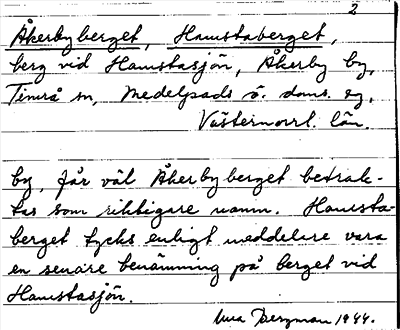 2
Åkerbyberget, Hamstaberget,
berg vid Hamstasjön, Åkerby by,
Timrå sn, Medelpads ö. doms. sg,
Västernorrl. län.
by, får väl Åkerbyberget betrak-
tas som riktigare namn. Hamsta-
berget tycks enligt meddelare vara
en senare benämning på berget vid
Hamstasjön.
Bergman 1944.